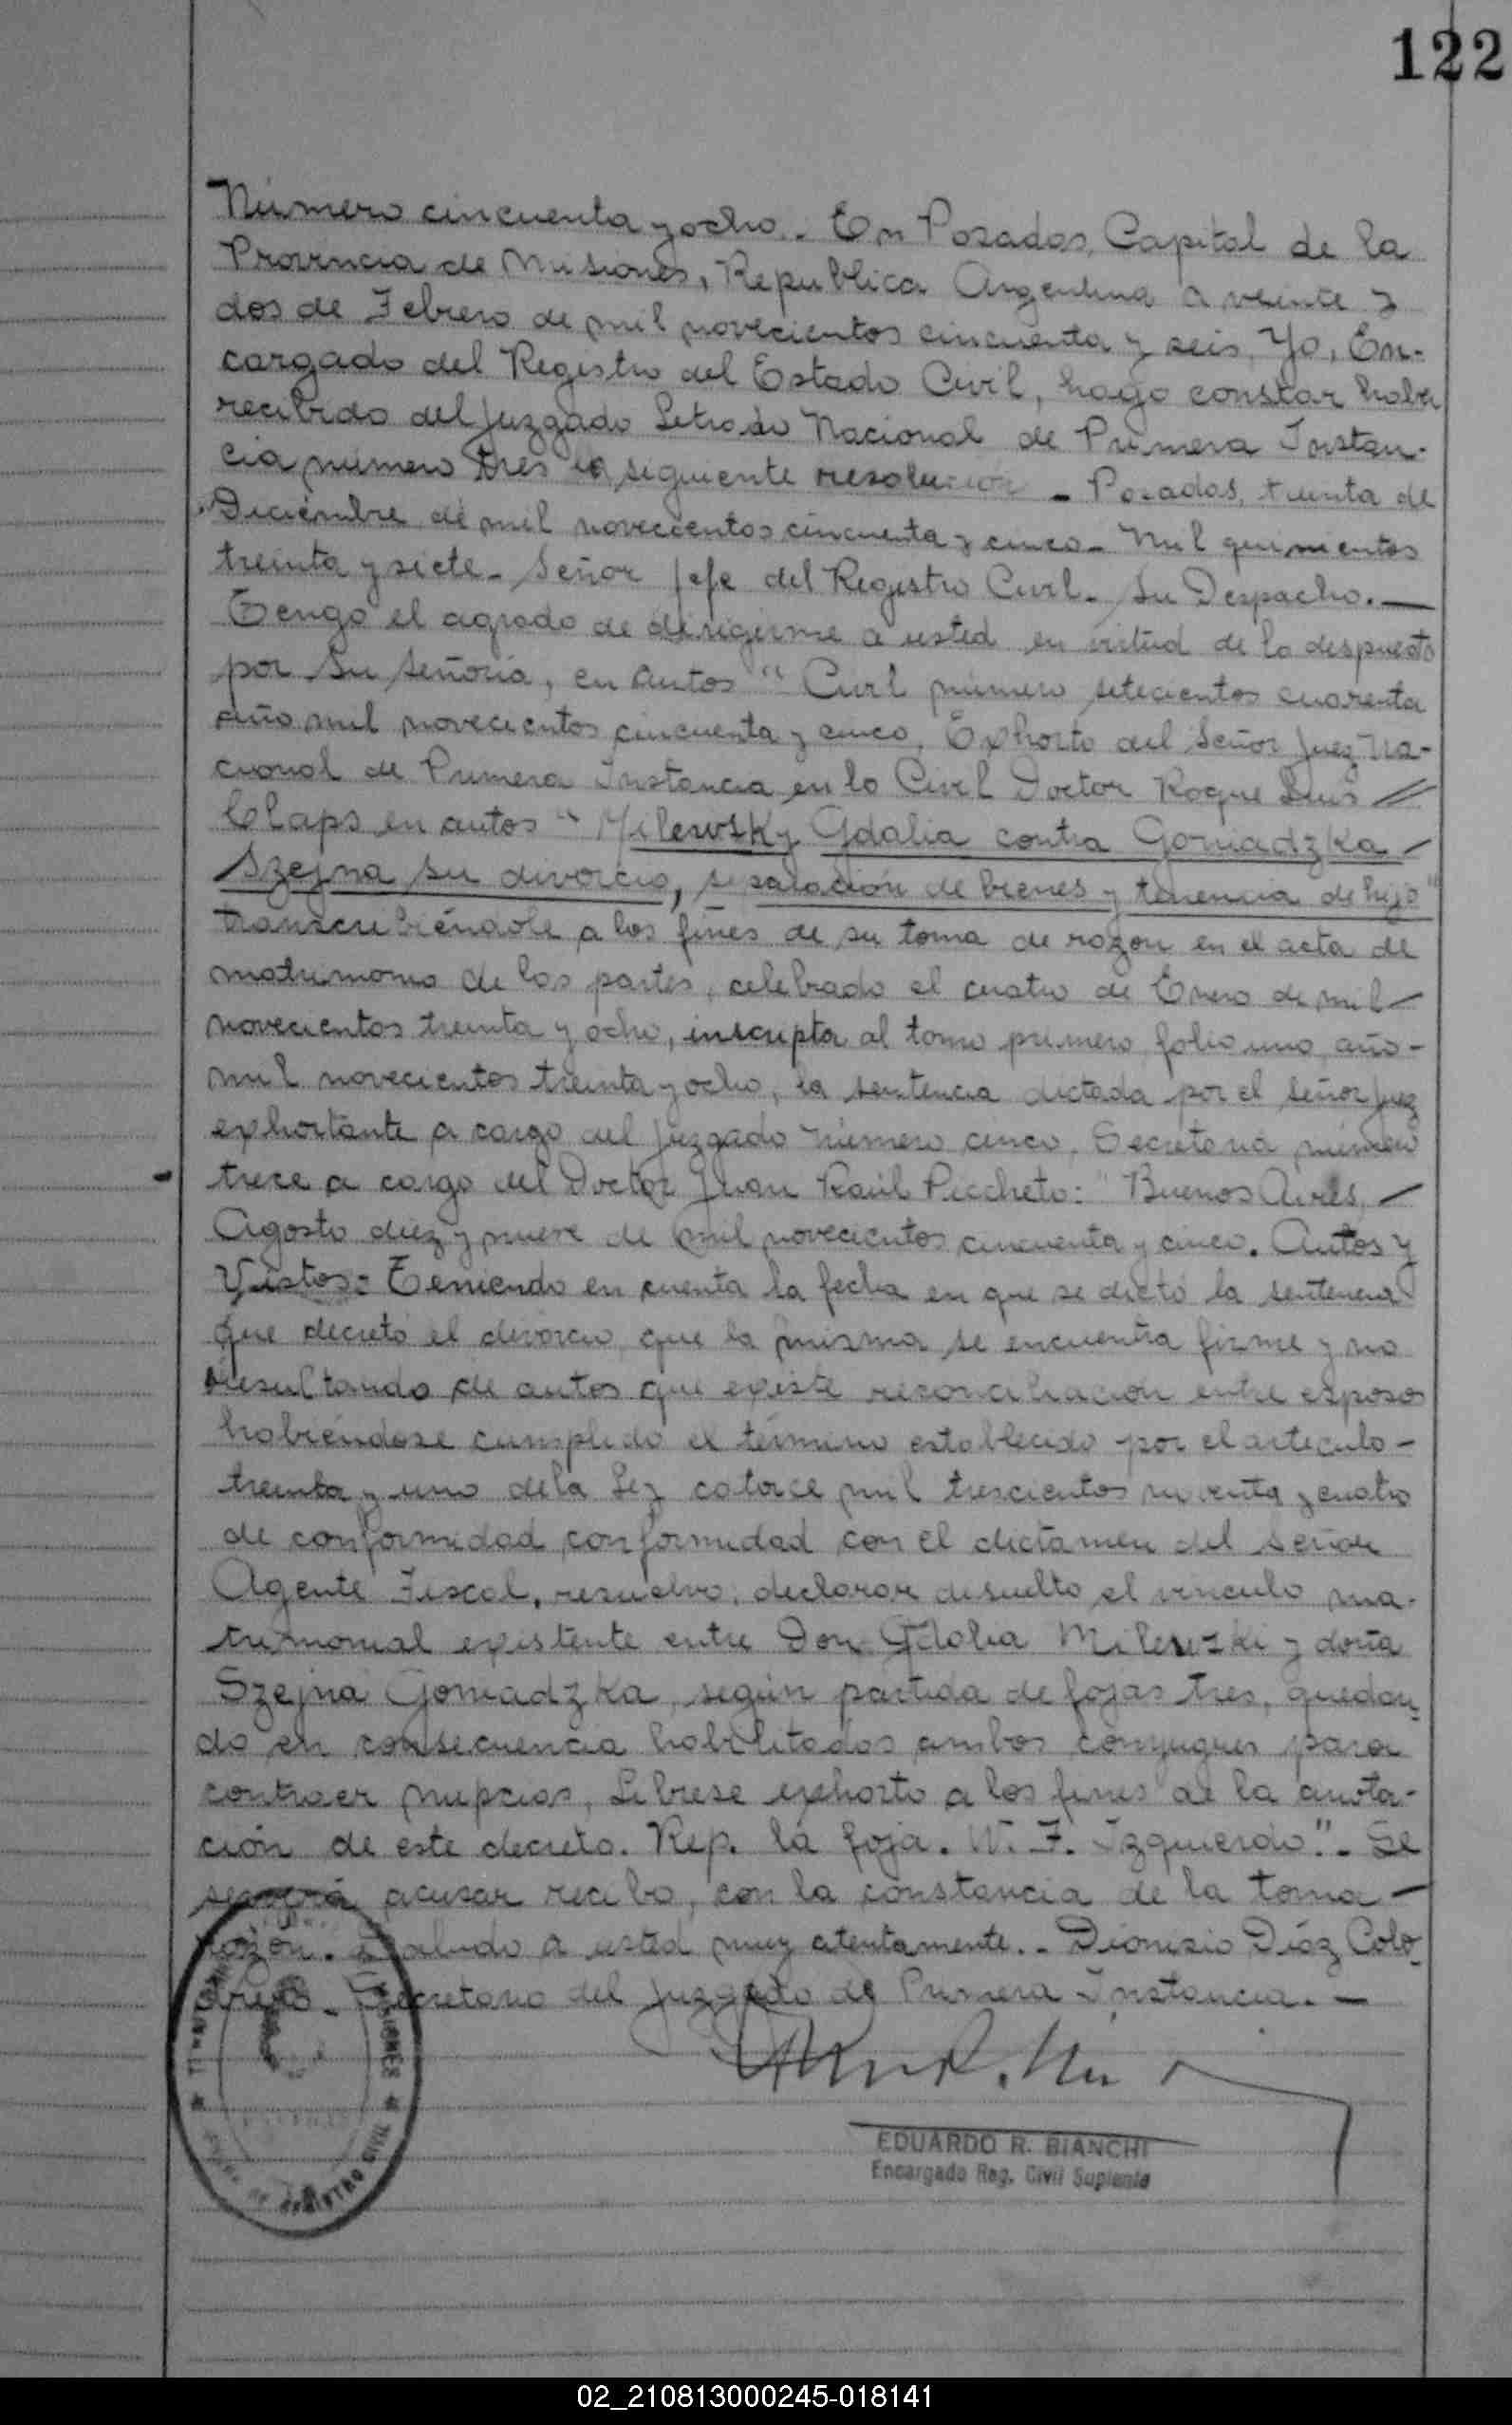 122
Número cincuenta y ocho.- En Posadas, Capital de la
Provincia de Misiones, Republica Argentina a veinte y
dos de Febrero de mil novecientos cincuenta y seis, Yo, En-
cargado del Registro del Estado Civil, hago constar haber
recibido del Juzgado Letrado Nacional de Primera Instan-
cia número tres la siguiente resolución - Posadas, treinta de
Diciembre de mil novecientos cincuenta y cinco - Mil quinientos
treinta y siete - Señor Jefe del Registro Civil - Su Despacho. —
Tengo el agrado de dirigirme a usted en virtud de lo despuesto
por Su Señoria, en autos " Civil número setecientos cuarenta
año mil novecientos cincuenta y cinco, Exhorto del Señor Juez Na-
cional de Primera Instancia en lo Civil Doctor Roque Luis //
Claps en autos " Milewsky Gdalia contra Goniadzka /
Szejna su divorcio, separación de bienes y tenencia de hijo"
transcribiéndole a los fines de su toma de razon en el acta de
matrimonio de los partes, celebrado el cuatro de Enero de mil -
novecientos treinta y ocho, inscripta al tomo primero folio uno año -
mil novecientos treinta y ocho, la sentencia dictada por el Señor Juez
exhortante a cargo del Juzgado número cinco, Secretaria número
trece a cargo del Doctor Juan Raúl Piccheto: " Buenos Aires, /
Agosto diez y nueve de mil novecientos cincuenta y cinco. Autos y
Vistos: Teniendo en cuenta la fecha en que se dictó la sentencia
que decretó el divorcio que la misma se encuentra firme y no
resultando de autos que existe reconciliación entre esposos
habiéndose cumplido el término establecido por el articulo -
treinta y uno de la Ley catorce mil trescientos noventa y cuatro
de conformidad conformidad con el dictamen del señor
Agente Fiscal, resuelvo: declarar disuelto el vinculo ma-
trimonial existente entre Don Gdalia Milewski y doña
Szejna Goniadzka, según partida de fojas tres, quedan-
do en consecuencia habilitados ambos conyuges para
contraer nupcias, Librese exhorto a los fines de la anota-
ción de este decreto. Rep. la foja. W. F. Izquierdo".- Se
servirá acusar recibo, con la constancia de la toma -
razón. Saludo a usted muy atentamente.. - Dionisio Díaz Colo-
brero - Secretario del Juzgado de Primera Instancia. —
EDUARDO R. BIANCHI
Encargado Reg. Civil Suplente
REGISTRO CIVIL
02_210813000245-018141